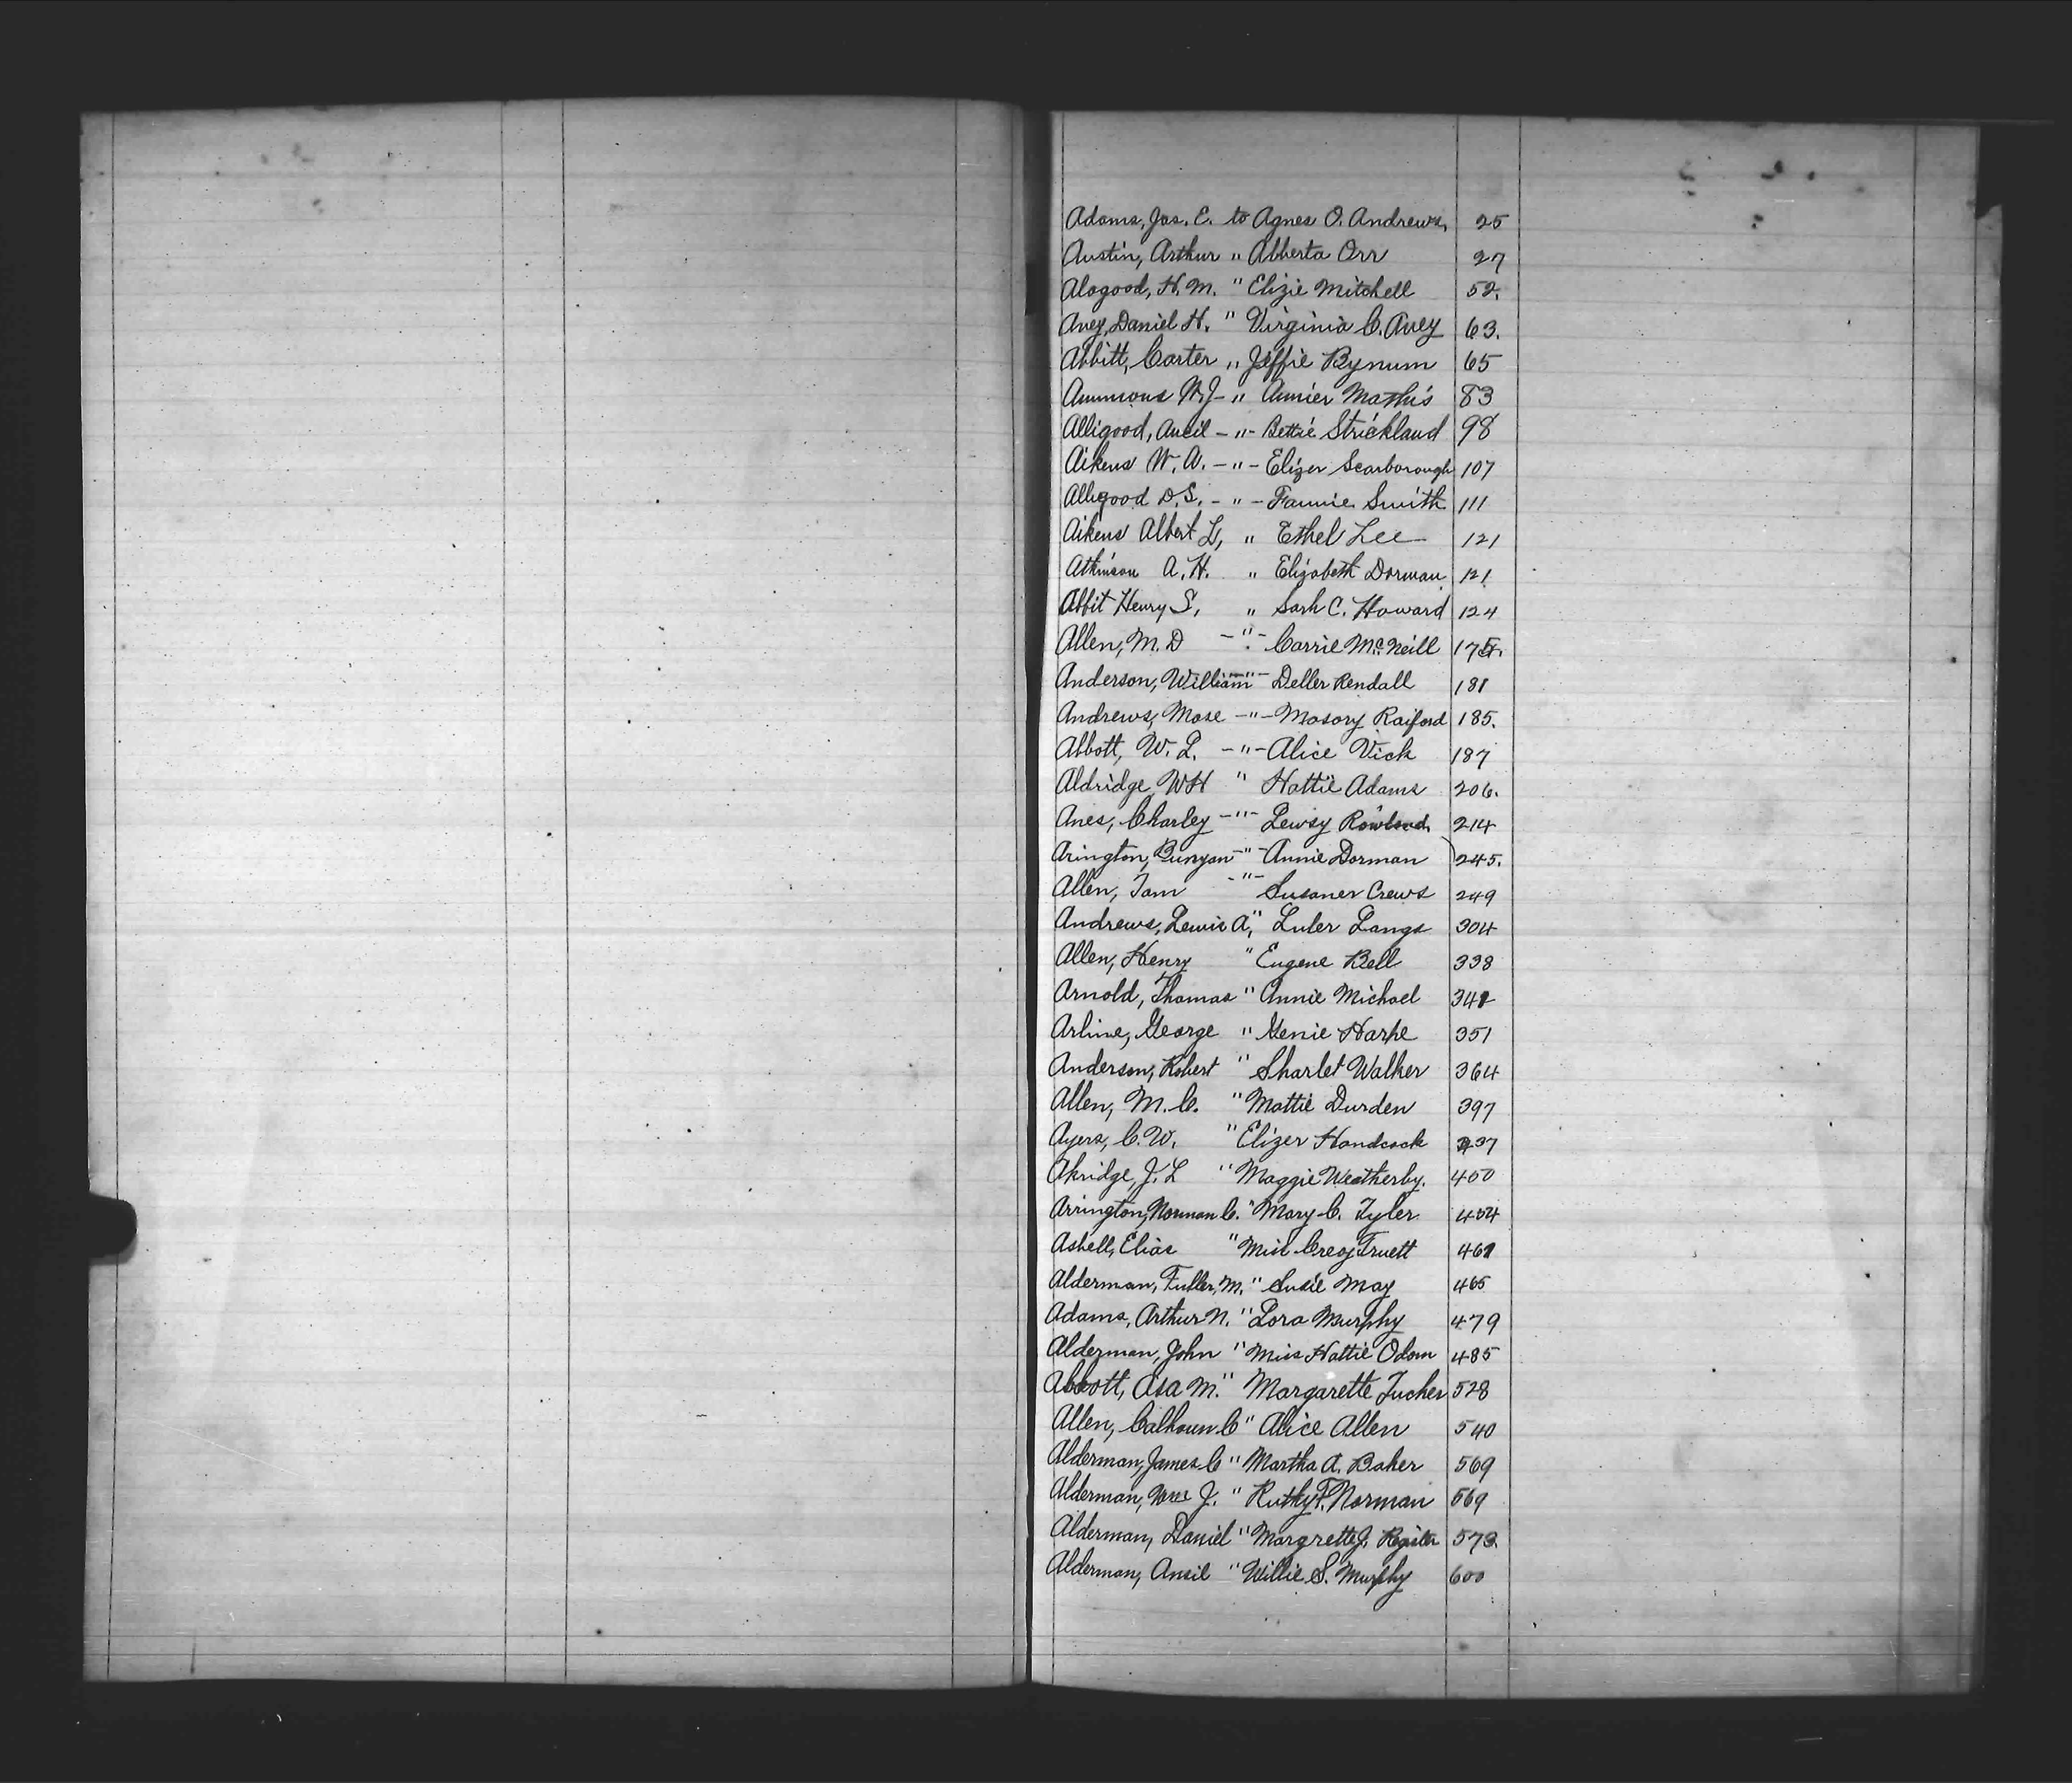 Adams, Jas. E. to Agnes O. Andrews, 25
Austin, Arthur " Abberta Orr 27
Alogood, H. M. " Elizie Mitchell 52.
Avey, Daniel H. " Virginia C. Avey 63.
Abbitt, Carter " Jeffie Bynum 65
Ammons W. J - " Annier Mathis 83
Alligood, Ancil - " - Bettie Strickland 98
Aikens W. A. - " - Elizer Scarborough 107
Alligood D. S. - " - Fannie Smith 111
Aikens Albert L, " Ethel Lee 121
Atkinson A. H. " Elizabeth Dorman 121
Abbit Henry S, " Sarh C. Howard 124
Allen, M. D - " - Carrie McNeill
Anderson, William " - Deller Rendall 181
Andrews, Mose - " - Masory Raiford 185.
Abbott, W. L. - " - Alice Vick 187
Aldridge, W H " Hattie Adams 206.
Anes, Charley - " - Lewsy Rowland 214
Arington, Bunyan - " - Annie Dorman 245.
Allen, Tom - " - Susaner Crews 249
Andrews, Lewis A, " Luler Langs 304
Allen, Henry " Eugene Bell 338
Arnold, Thomas " Annie Michael
Arline, George " Genie Harpe 351
Anderson, Robert " Sharlet Walker 364
Allen, M. C. " Mattie Durden 397
Ayers, C. W. " Elizer Handcock
Akridge, J. L " Maggie Weatherby. 450
Arrington, Norman C. " Mary C. Tyler 454
Asbell, Elias " Miss Creoy Truett 461
Alderman, Fuller, M. " Susie May 465
Adams, Arthur N. " Lora Murphy 479
Alderman, John " Miss Hattie Odom 485
Abbott, Asa M. " Margarette Tucker 528
Allen, Calhoun C " Alice Allen 540
Alderman, James C " Martha A. Baker 569
Alderman, Wm J. " Ruthy F. Norman 569
Alderman, Daniel " Margrette J. Register 573.
Alderman, Ansil " Willie S. Murphy 600